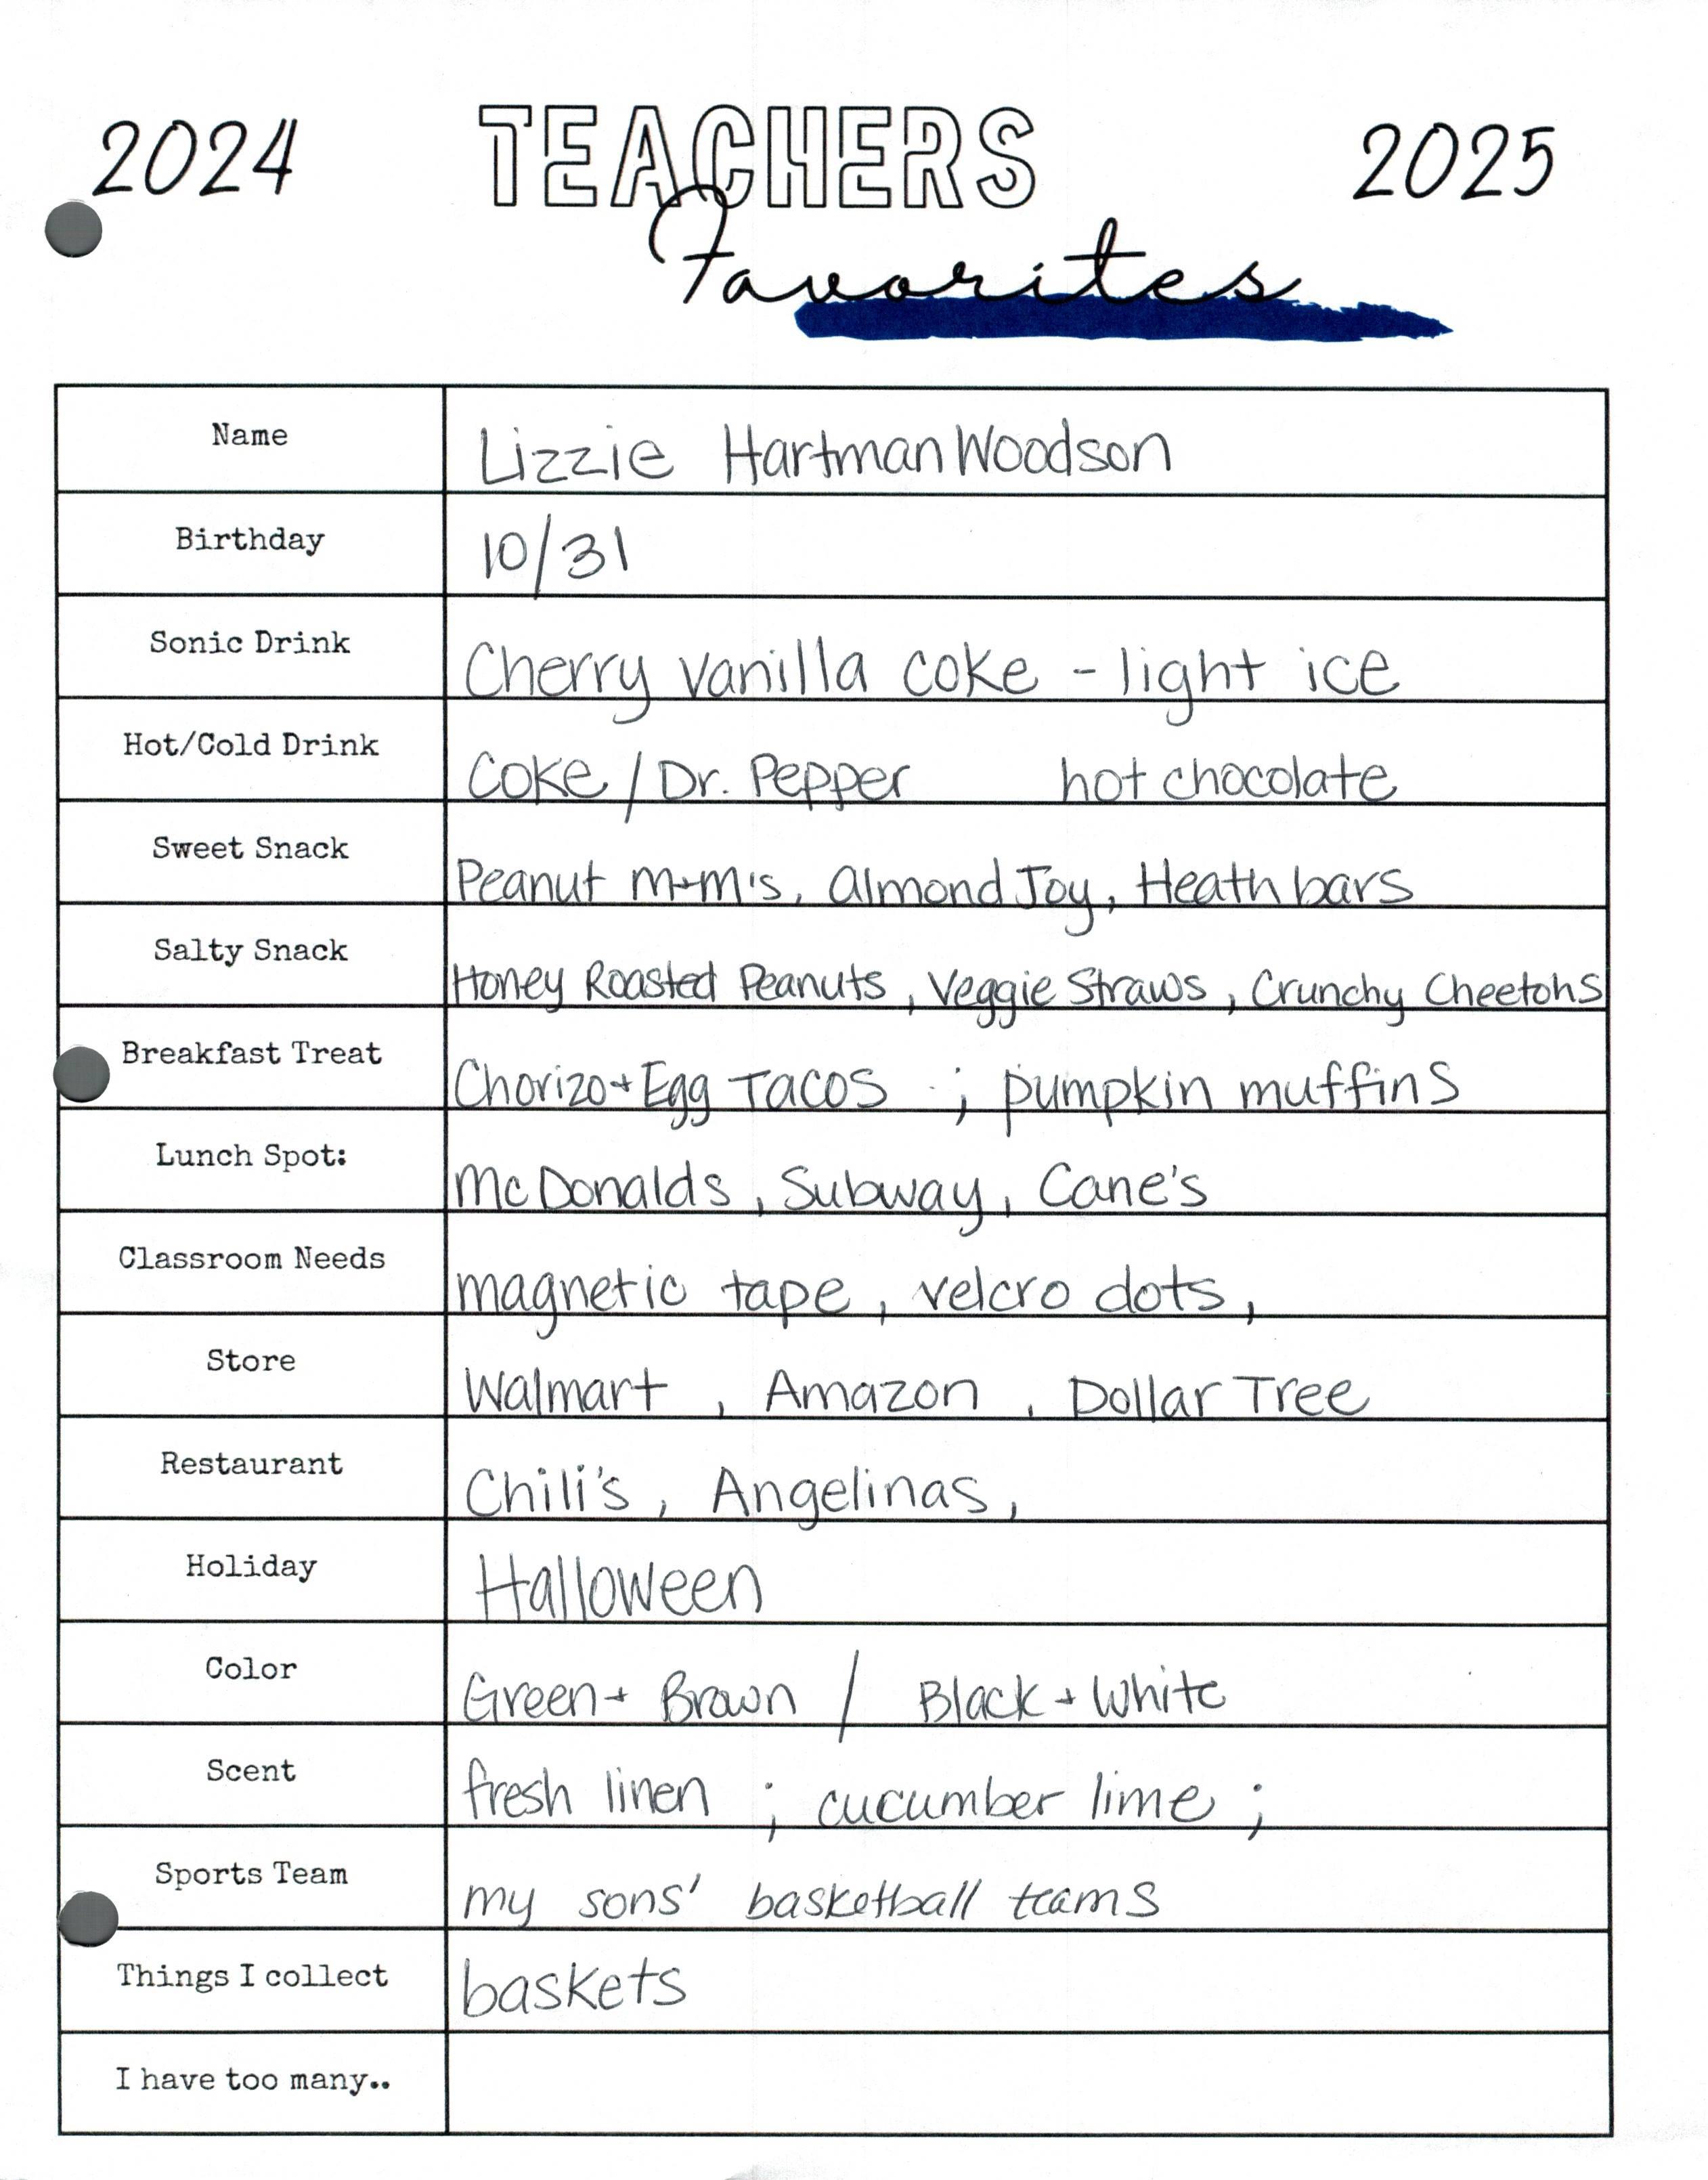 2024 TEACHERS 2025
Favorites
Name Lizzie Hartman Woodson
Birthday 10/31
Sonic Drink Cherry vanilla coke - light ice
Hot/Cold Drink Coke / Dr. Pepper hot chocolate
Sweet Snack Peanut m+m's, almond Joy, Heath bars
Salty Snack Honey Roasted Peanuts, Veggie Straws, Crunchy Cheetohs
Breakfast Treat Chorizo + Egg Tacos ; pumpkin muffins
Lunch Spot: McDonalds, Subway, Cane's
Classroom Needs magnetic tape, velcro dots,
Store Walmart, Amazon, Dollar Tree
Restaurant Chili's, Angelinas,
Holiday Halloween
Color Green + Brown / Black + White
Scent fresh linen ; cucumber lime ;
Sports Team my sons' basketball teams
Things I collect baskets
I have too many..